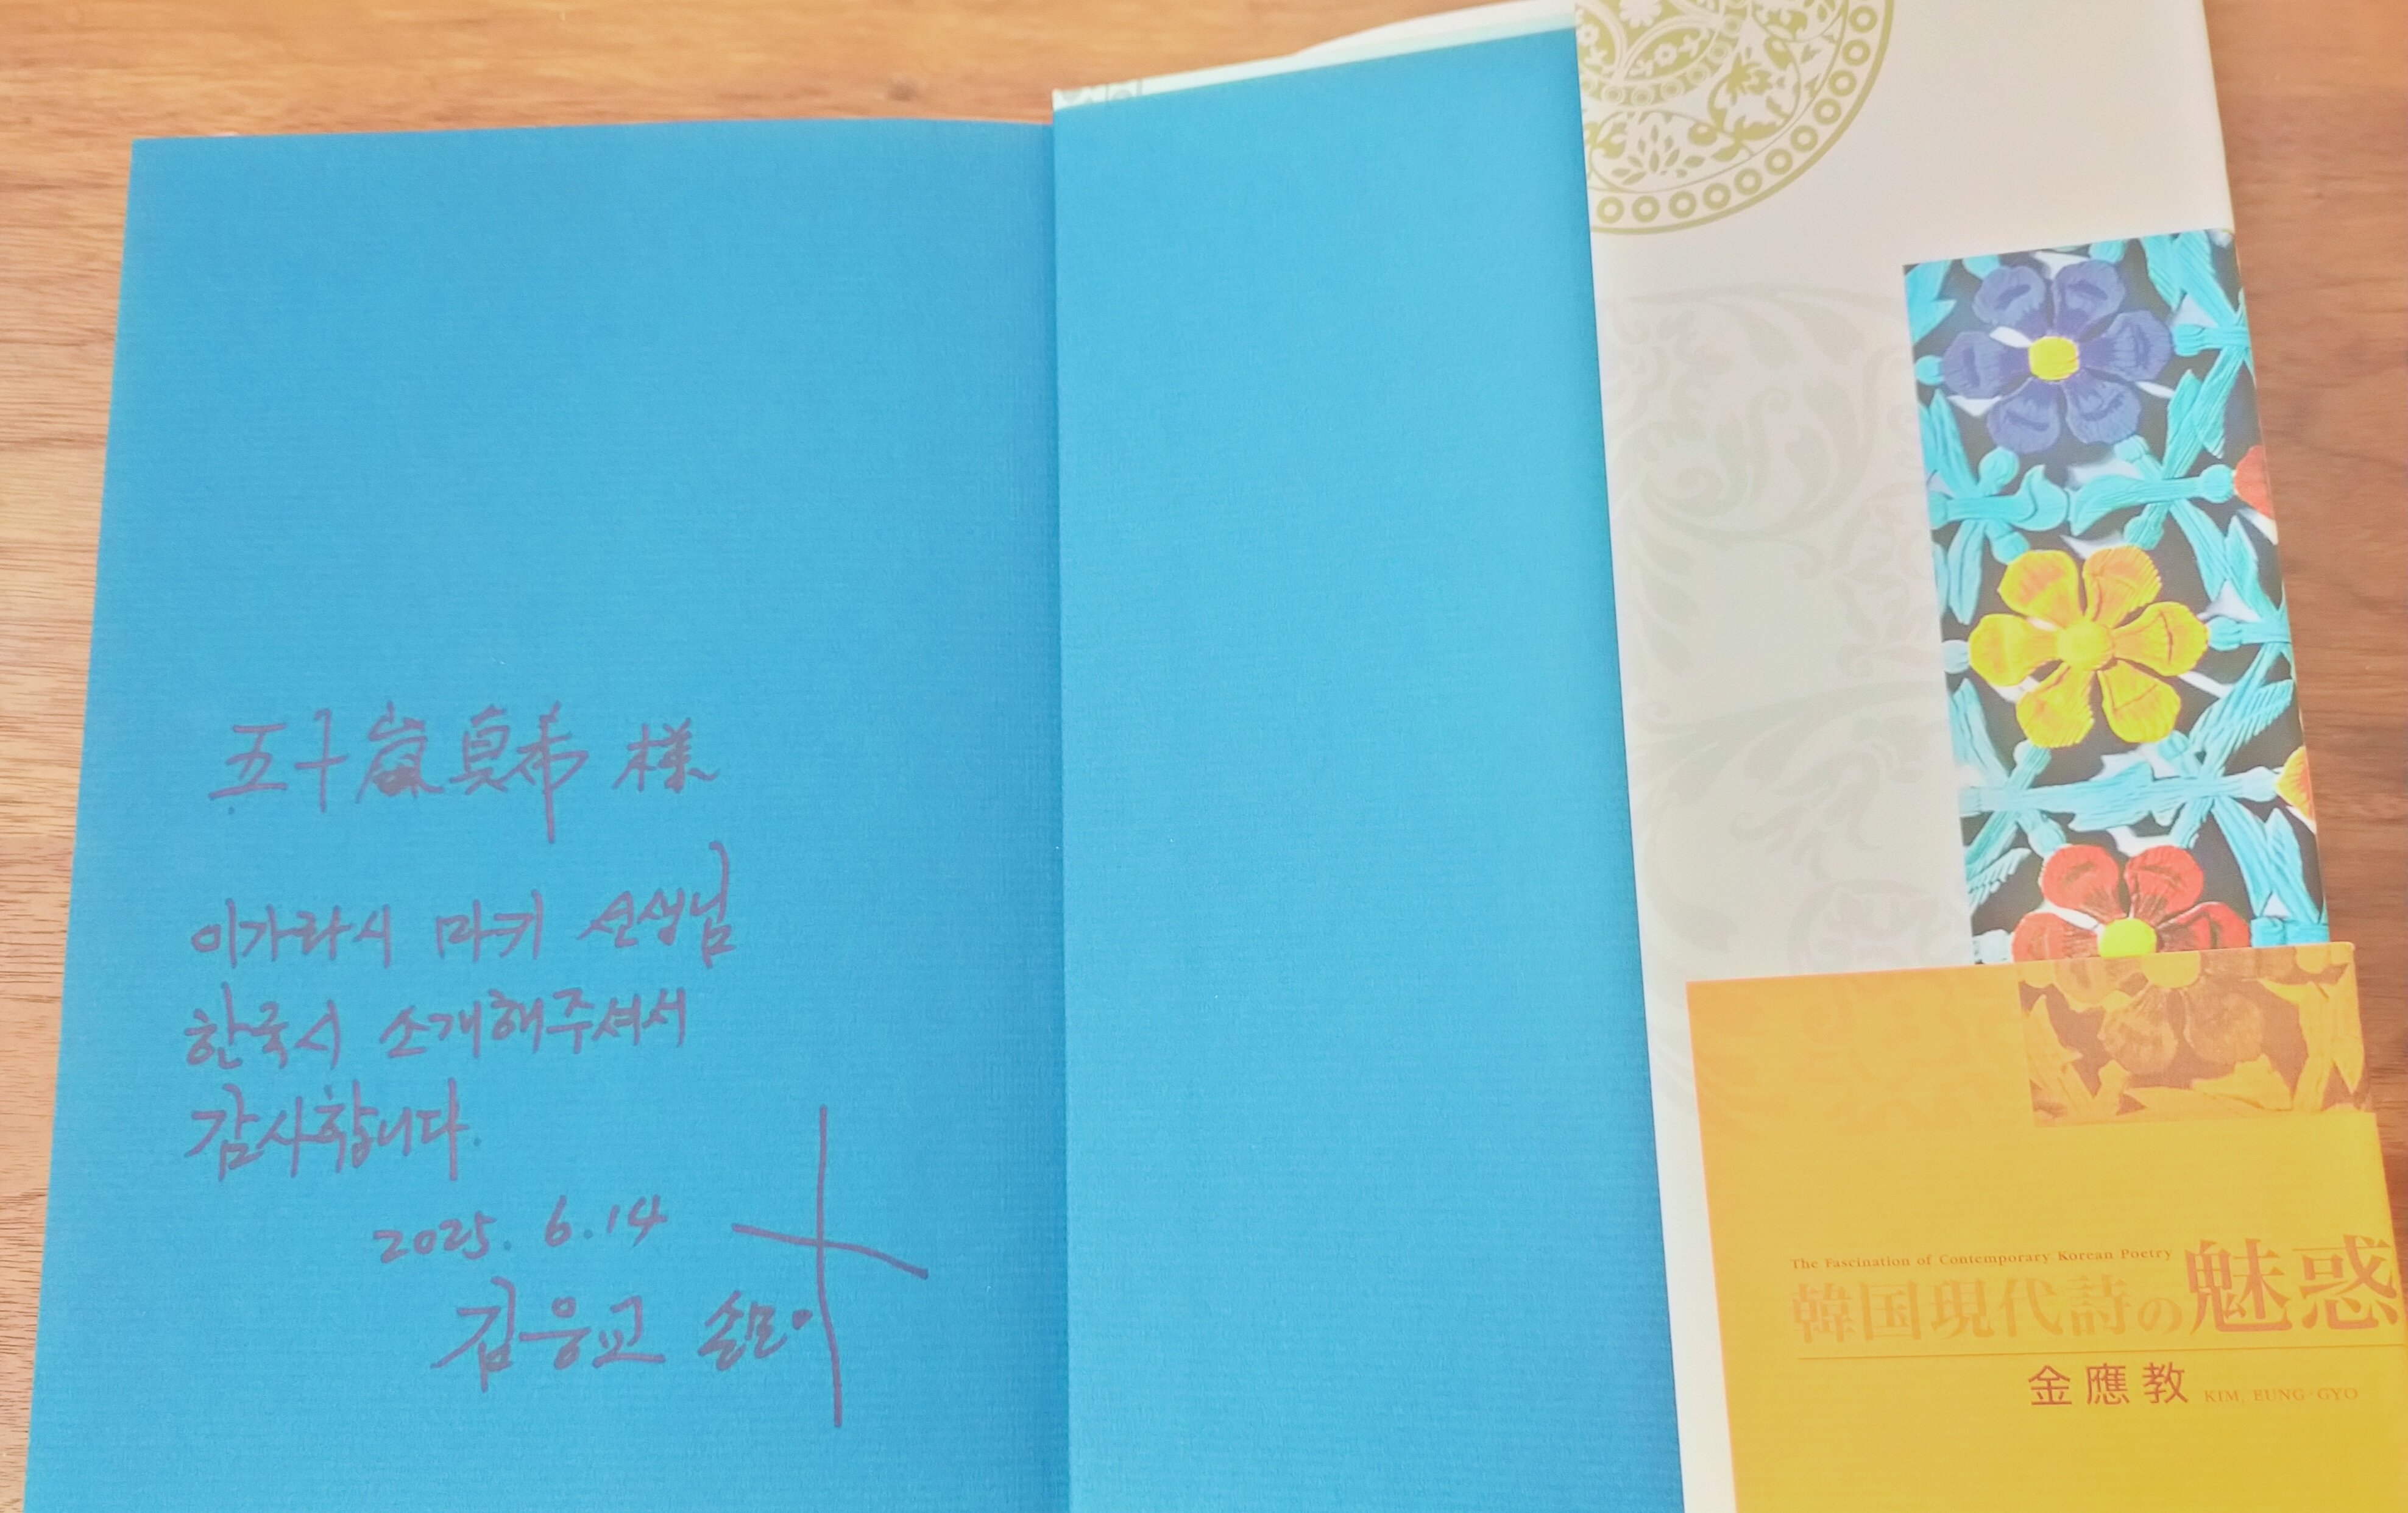 五十嵐真希 様
이가라시 마키 선생님
한국시 소개해주셔서
감사합니다.
2025. 6.14
김응교 손모아
The Fascination of Contemporary Korean Poetry
韓国現代詩の魅惑
金應教 KIM, EUNG-GYO